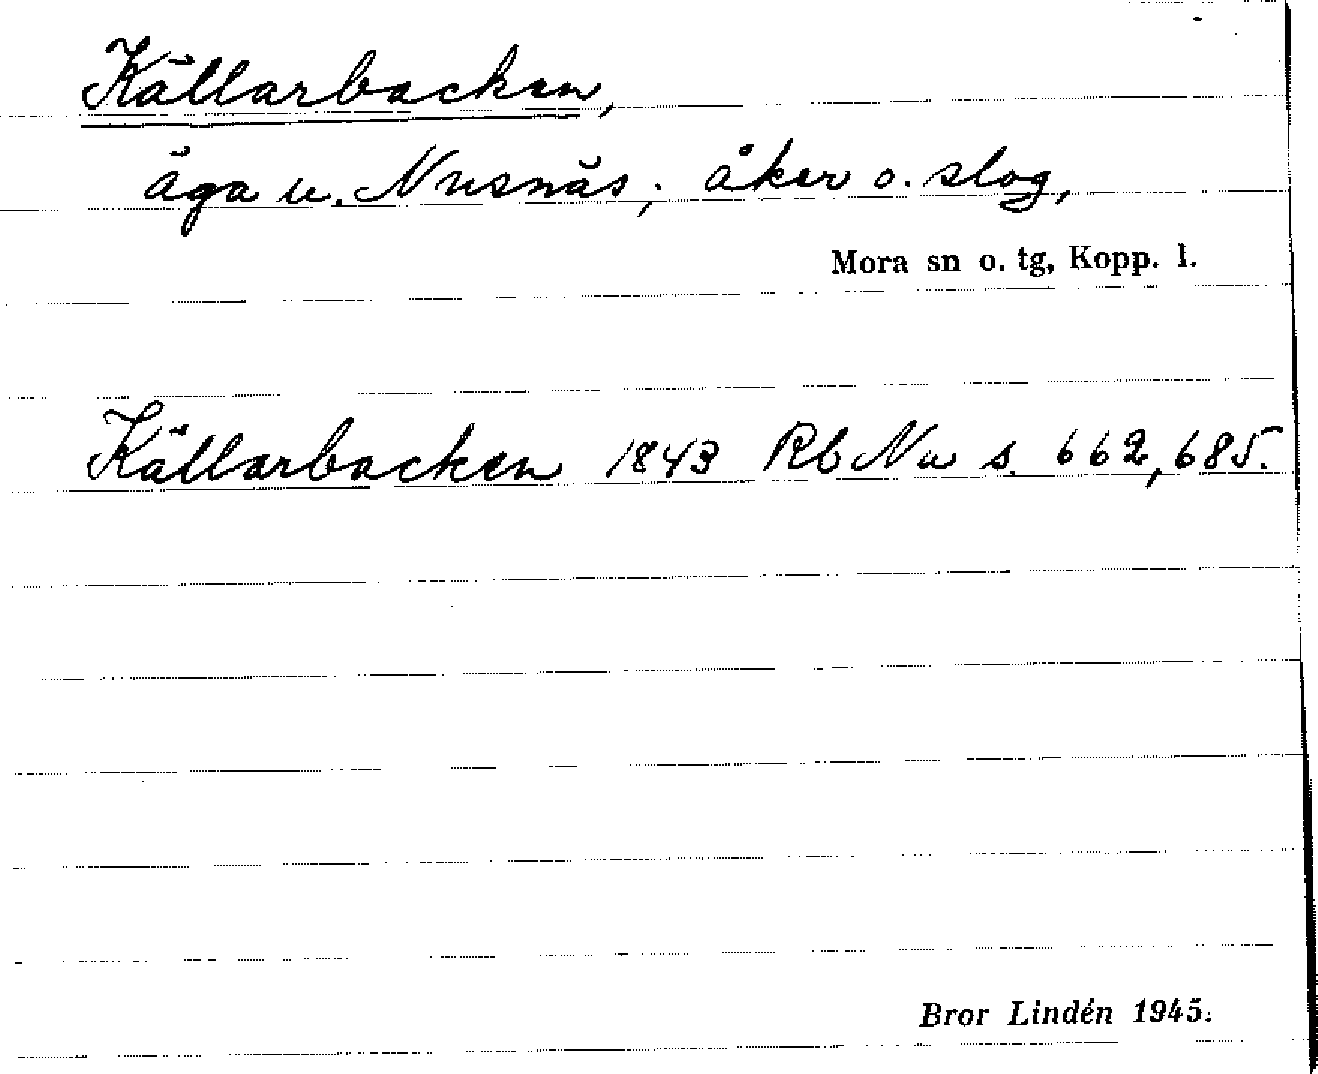 Källarbacken,
äga u. Nusnäs; åker o. slog,
Mora sn o. tg, Kopp. l.
Källarbacken 1843 Rb Nu s. 662, 685.
Bror Lindén 1945.